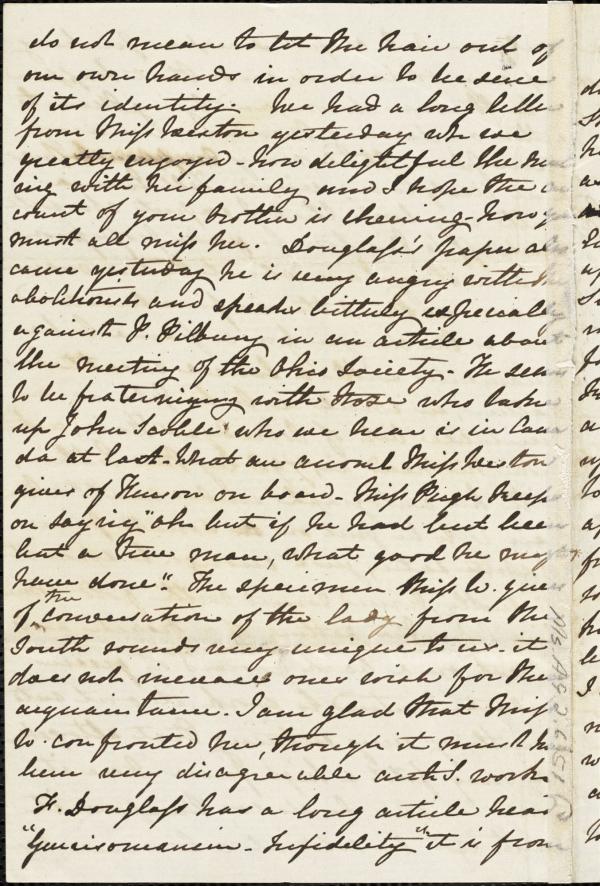 do not mean to let the hair out of
our own hands in order to be sure
of its identity. We had a long lette
from Miss Weston yesterday wh we
greatly enjoyed - how delightful the
ing with her family and I hope the
count of your brother is cheering - how
must all miss her. Douglass's paper al
came yesterday he is very angry with
abolitionists and speaks bitterly especial
against P. Pilbury in an article about
the meeting of the Ohio Society - He
to be fraternizing with those who
up John Scoble who we hear is in Cana
da at last - What an account Miss Weston
gives of on board - Miss Pugh keeps
on saying "oh but if he had but been
but a true man, what good he might
have done". The specimen Miss W. gives
of the conversation of the lady from the
South sounds very unique to us - it
does not increase ones wish for the
acquaintance. I am glad that Miss
W. confronted her, though it must h
been very disagreeable anti S. work
F. Douglass has a long article head
"Garrisonianism - Infidelity" it is from